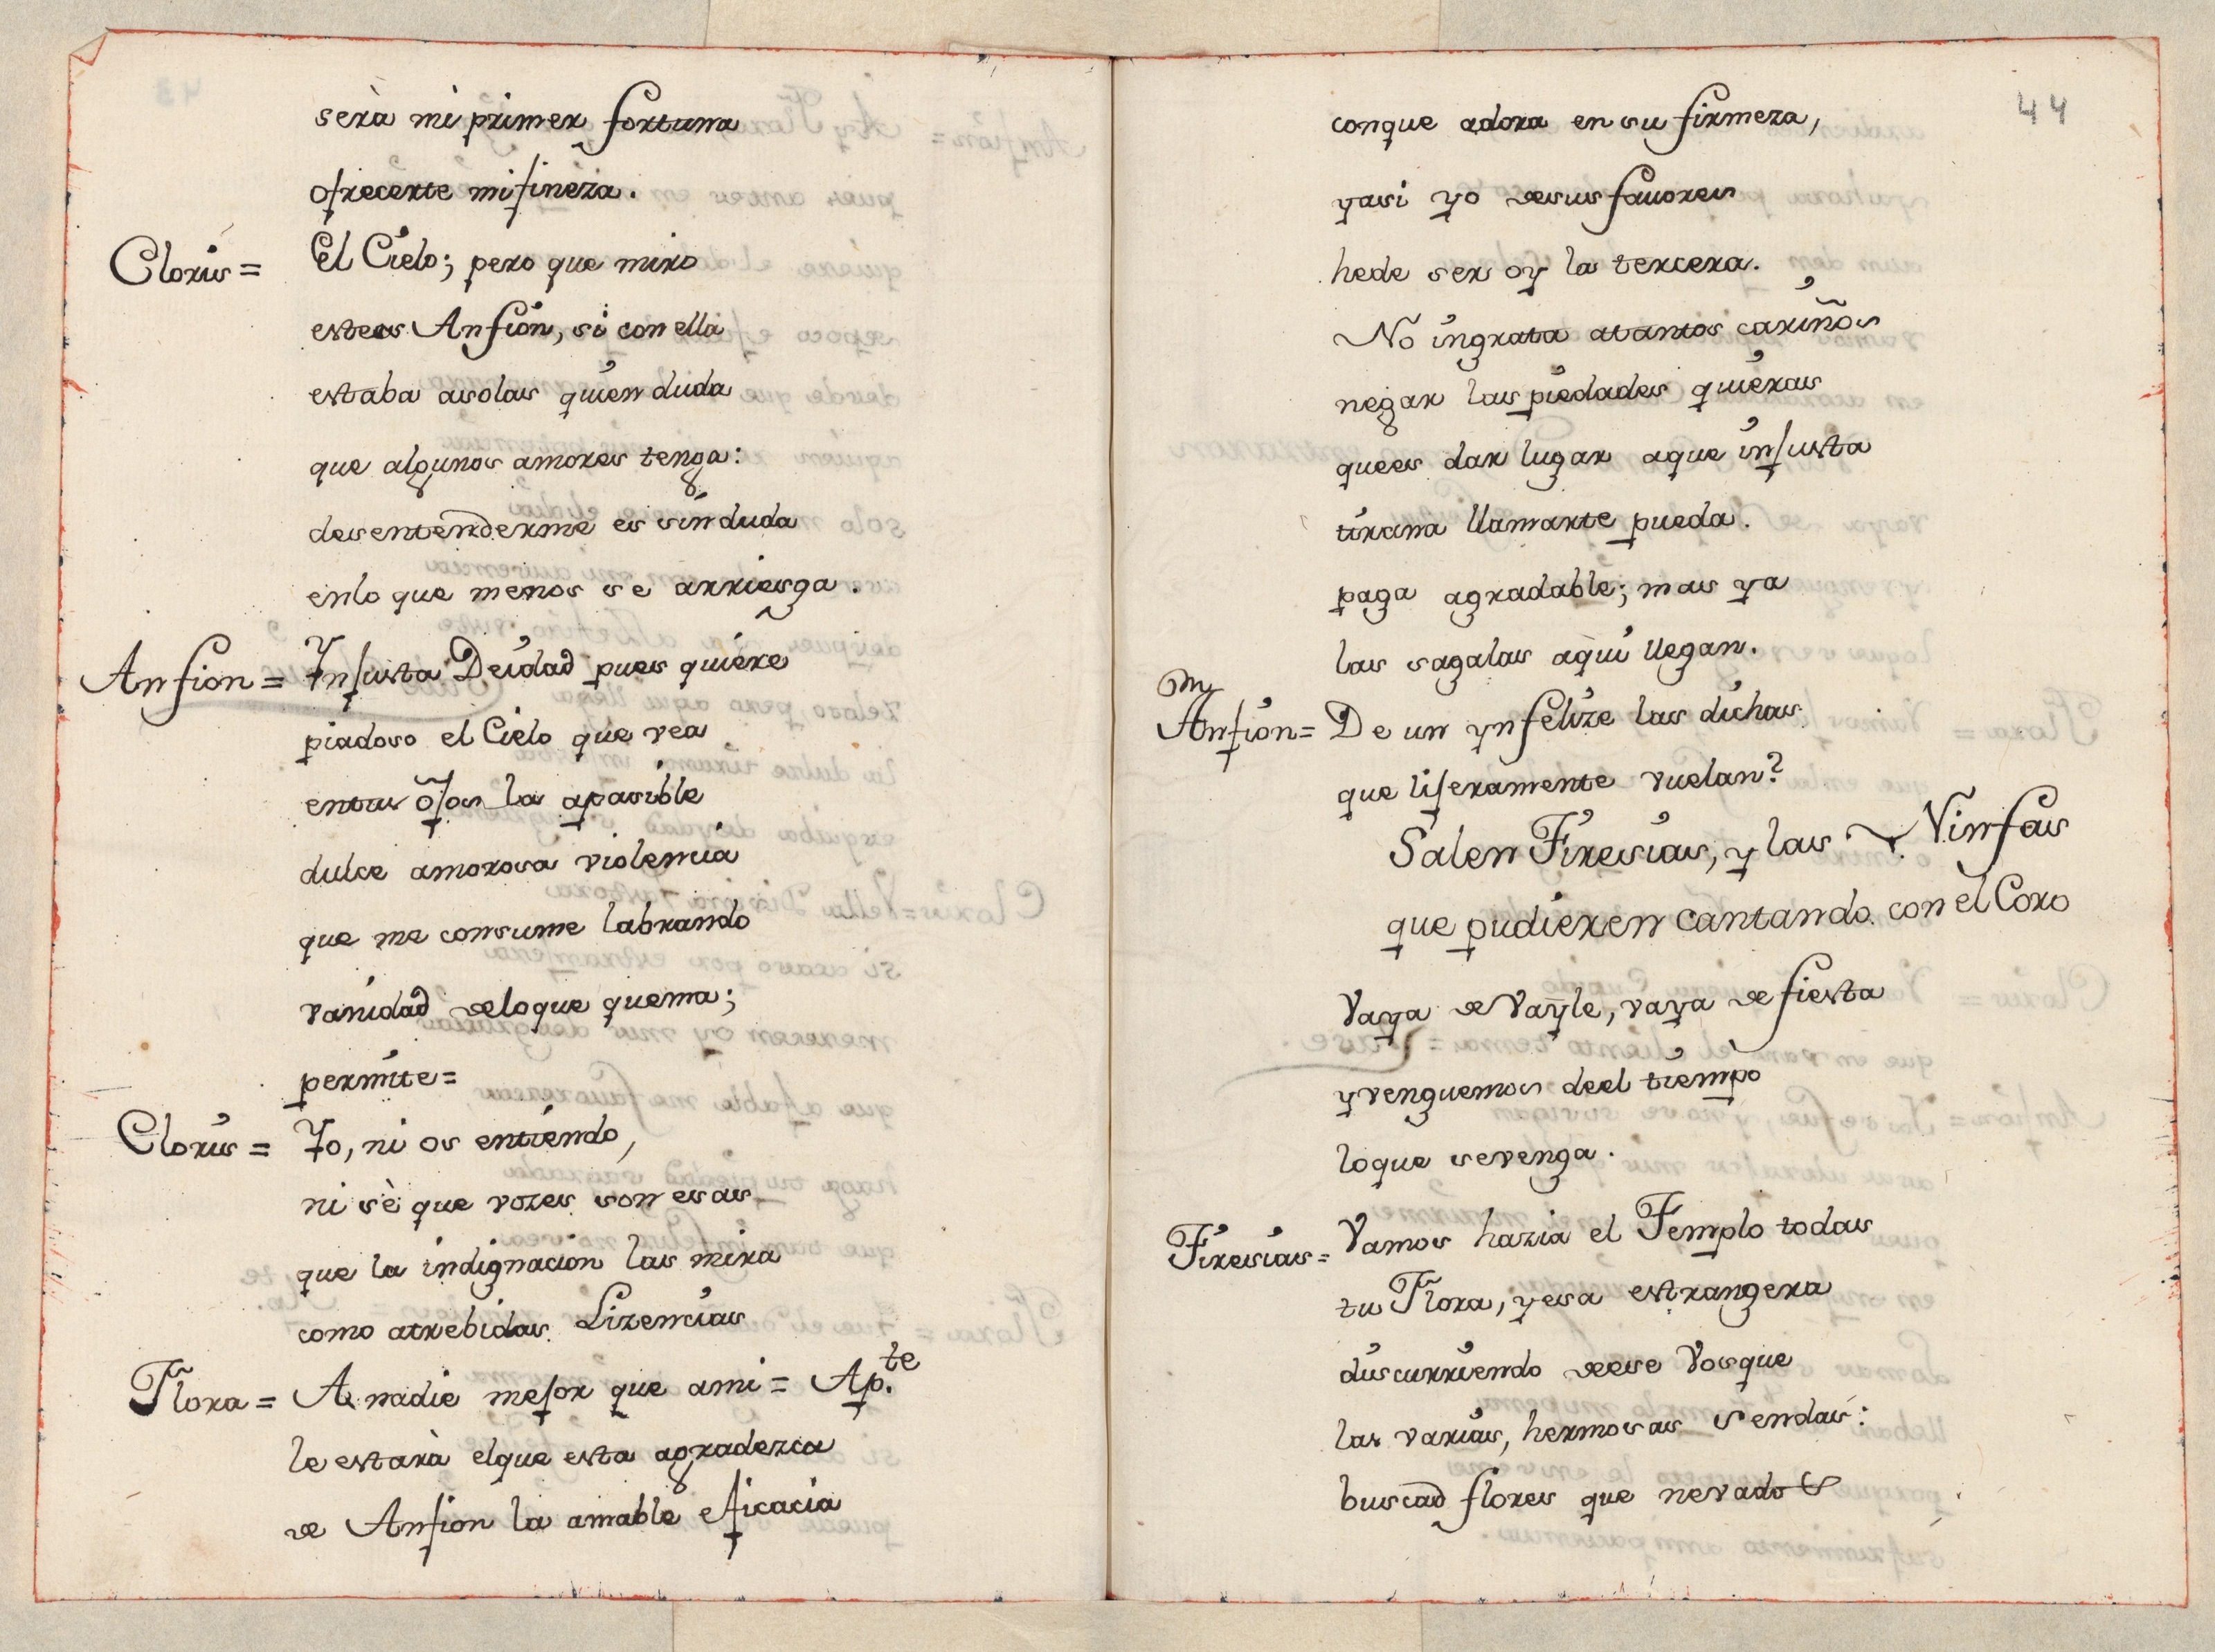 serà mi primer fortuna
ofrecerte mi fineza.
Cloris = El Cielo; pero que miro
este es Anfion, si con ella
estaba asolas quien duda
que algunos amores tenga:
desentenderme es sin duda
enlo que menos se arriesga.
Anfion = Injusta Deidad pues quiere
piadoso el Cielo que vea
entus ojos la apasible
dulce amorosa violencia
que me consume labrando
vanidad deloque quema;
permite =
Cloris = Yo, ni os entiendo,
ni sè que vozes son esas
que la indignacion las mira
como atrebidas Lizencias
Flora = A nadie mejor que ami = Ap.te
le estarà elque esta agradezca
de Anfion la amable eficacia
44
conque adora en su firmeza,
yasi yo desus favores
hede ser oy la tercera.
No ingrata atantos cariños
negar las piedades quieras
quees dar lugar aque injusta
tirana llamarte pueda.
paga agradable; mas ya
las sagalas aqui llegan.
Anfion = De un ynfelize las dichas
que lijeramente vuelan?
Salen Tiresias, y las Ninfas
que pudieren cantando con el Coro
Vaya de Vayle, vaya de fiesta
yvenguemos deel tiempo
loque sevenga.
Tiresias = Vamos hazia el Templo todas
tu Flora, yesa estrangera
discurriendo deese Vosque
las varias, hermosas Sendas:
buscad flores que nevado